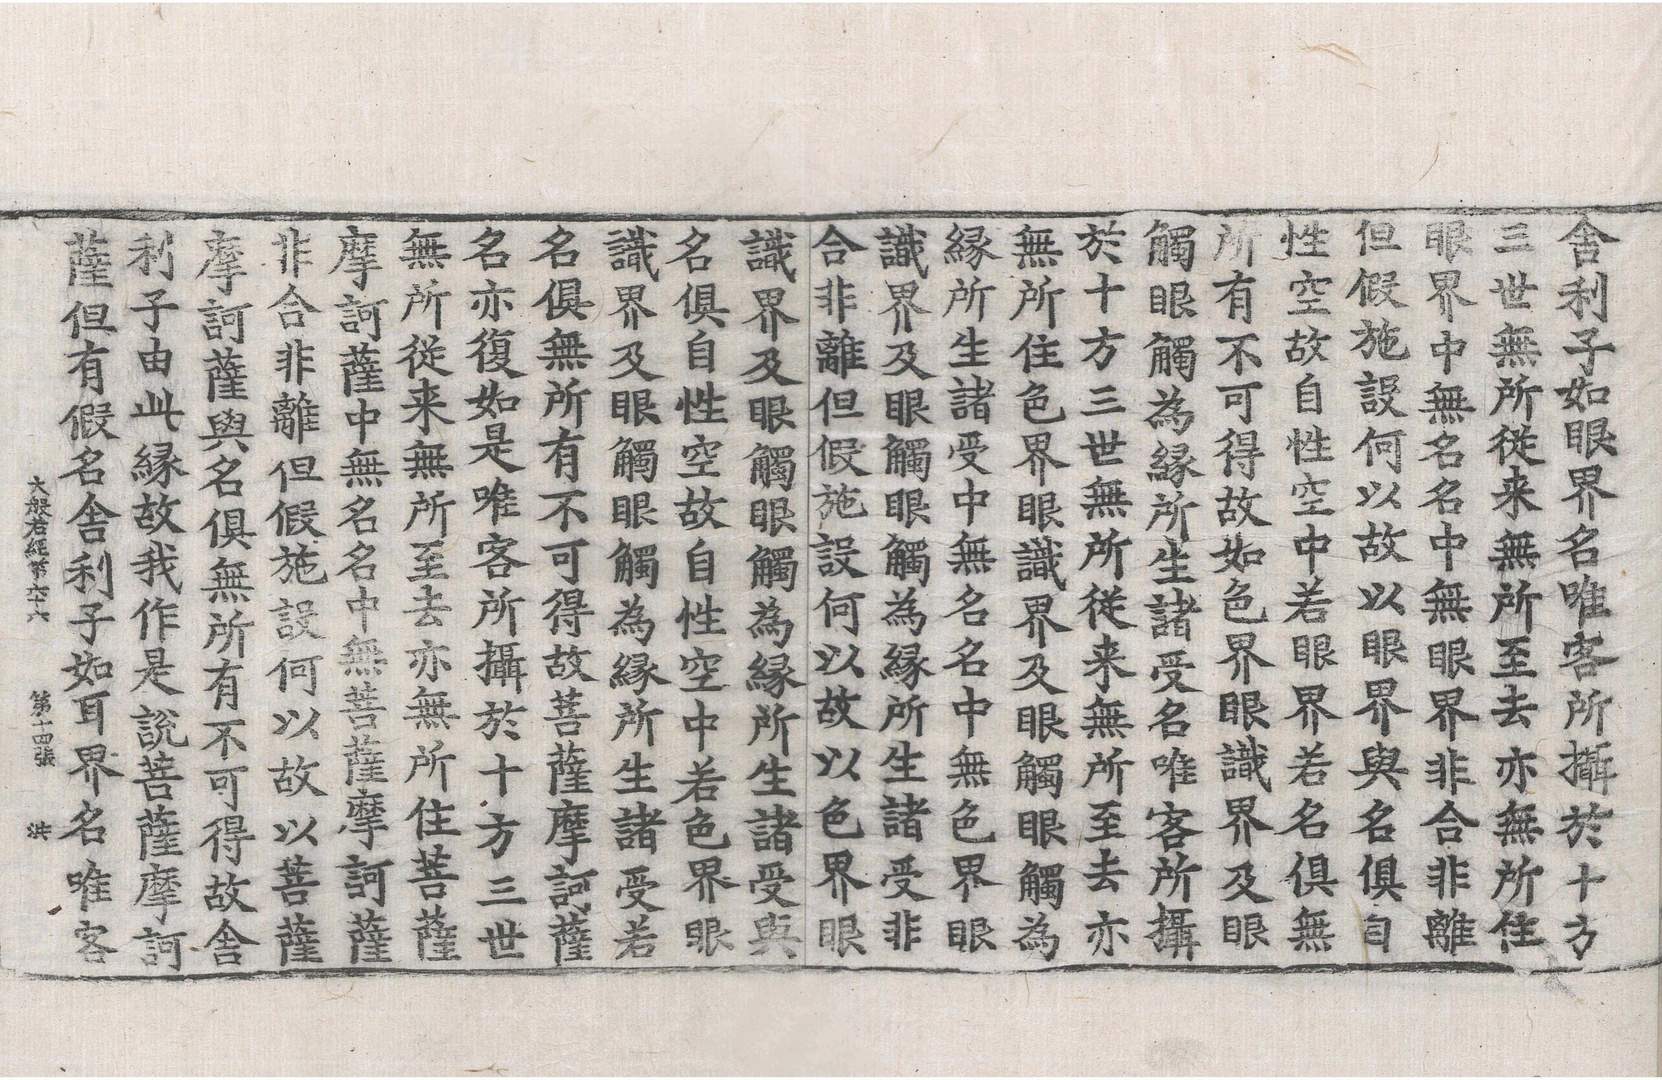 舎利子如眼界名唯客所攝於十方
三世無所従来無所至去亦無所住
眼界中無名名中無眼界非合非離
但假施設何以故以眼界與名俱自
性空故自性空中若眼界若名俱無
所有不可得故如色界眼識界及眼
觸眼觸為縁所生諸受名唯客所攝
於十方三世無所従来無所至去亦
無所住色界眼識界及眼觸眼觸為
縁所生諸受中無名名中無色界眼
識界及眼觸眼觸為縁所生諸受非
合非離但假施設何以故以色界眼
識界及眼觸眼觸為縁所生諸受與
名俱自性空故自性空中若色界眼
識界及眼觸眼觸為縁所生諸受若
名俱無所有不可得故菩薩摩訶薩
名亦復如是唯客所攝於十方三世
無所従来無所至去亦無所住菩薩
摩訶薩中無名名中無菩薩摩訶薩
非合非離但假施設何以故以菩薩
摩訶薩與名俱無所有不可得故舎
利子由此縁故我作是說菩薩摩訶
薩但有假名舎利子如耳界名唯客
大般若經第六十六 第十四張 洪